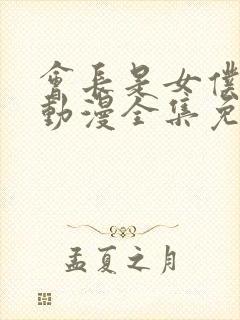 會長是女僕
動漫全集免
孟夏之月